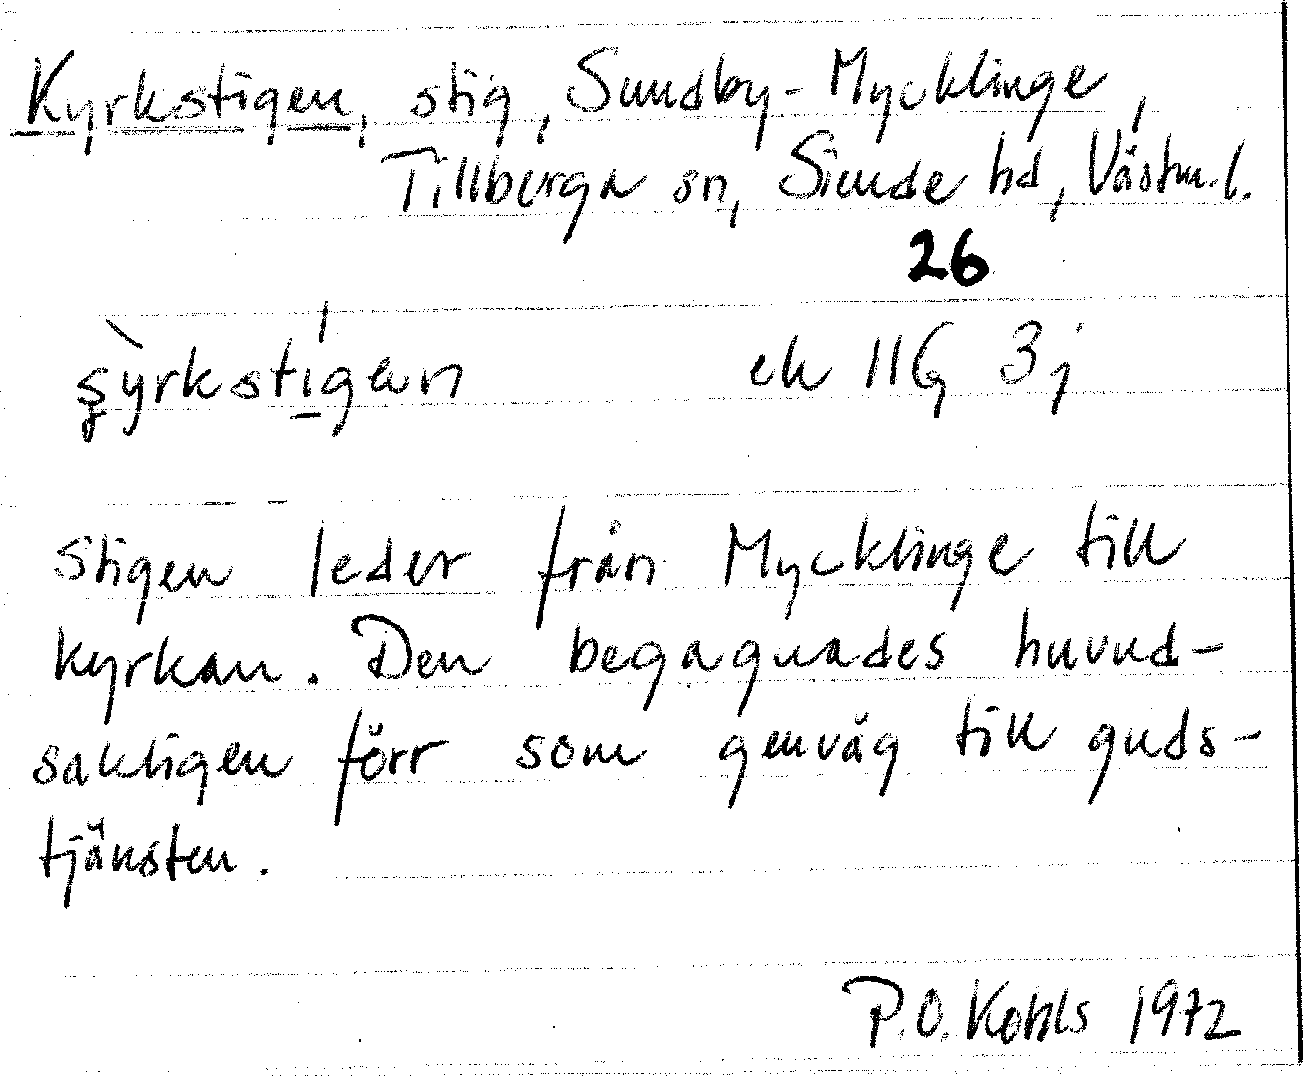 Kyrkstigen, stig, Sundby-Mycklinge,
Tillberga sn, Siende hd, Västm. l.
26
ek 11G 3j
Stigen leder från Mycklinge till
kyrkan. Den begagnades huvud-
sakligen förr som genväg till guds-
tjänsten.
P.O. Kohls 1972